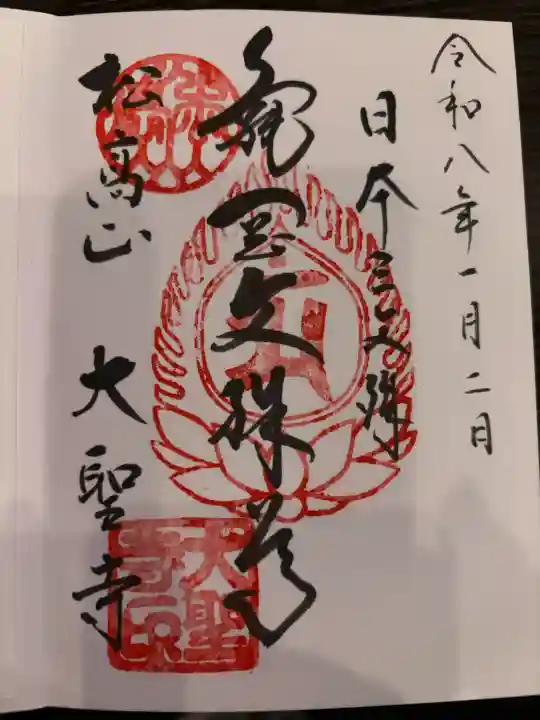 令和八年一月二日
日本三文殊
亀岡文殊尊
松高山 大聖寺
大聖
寺印